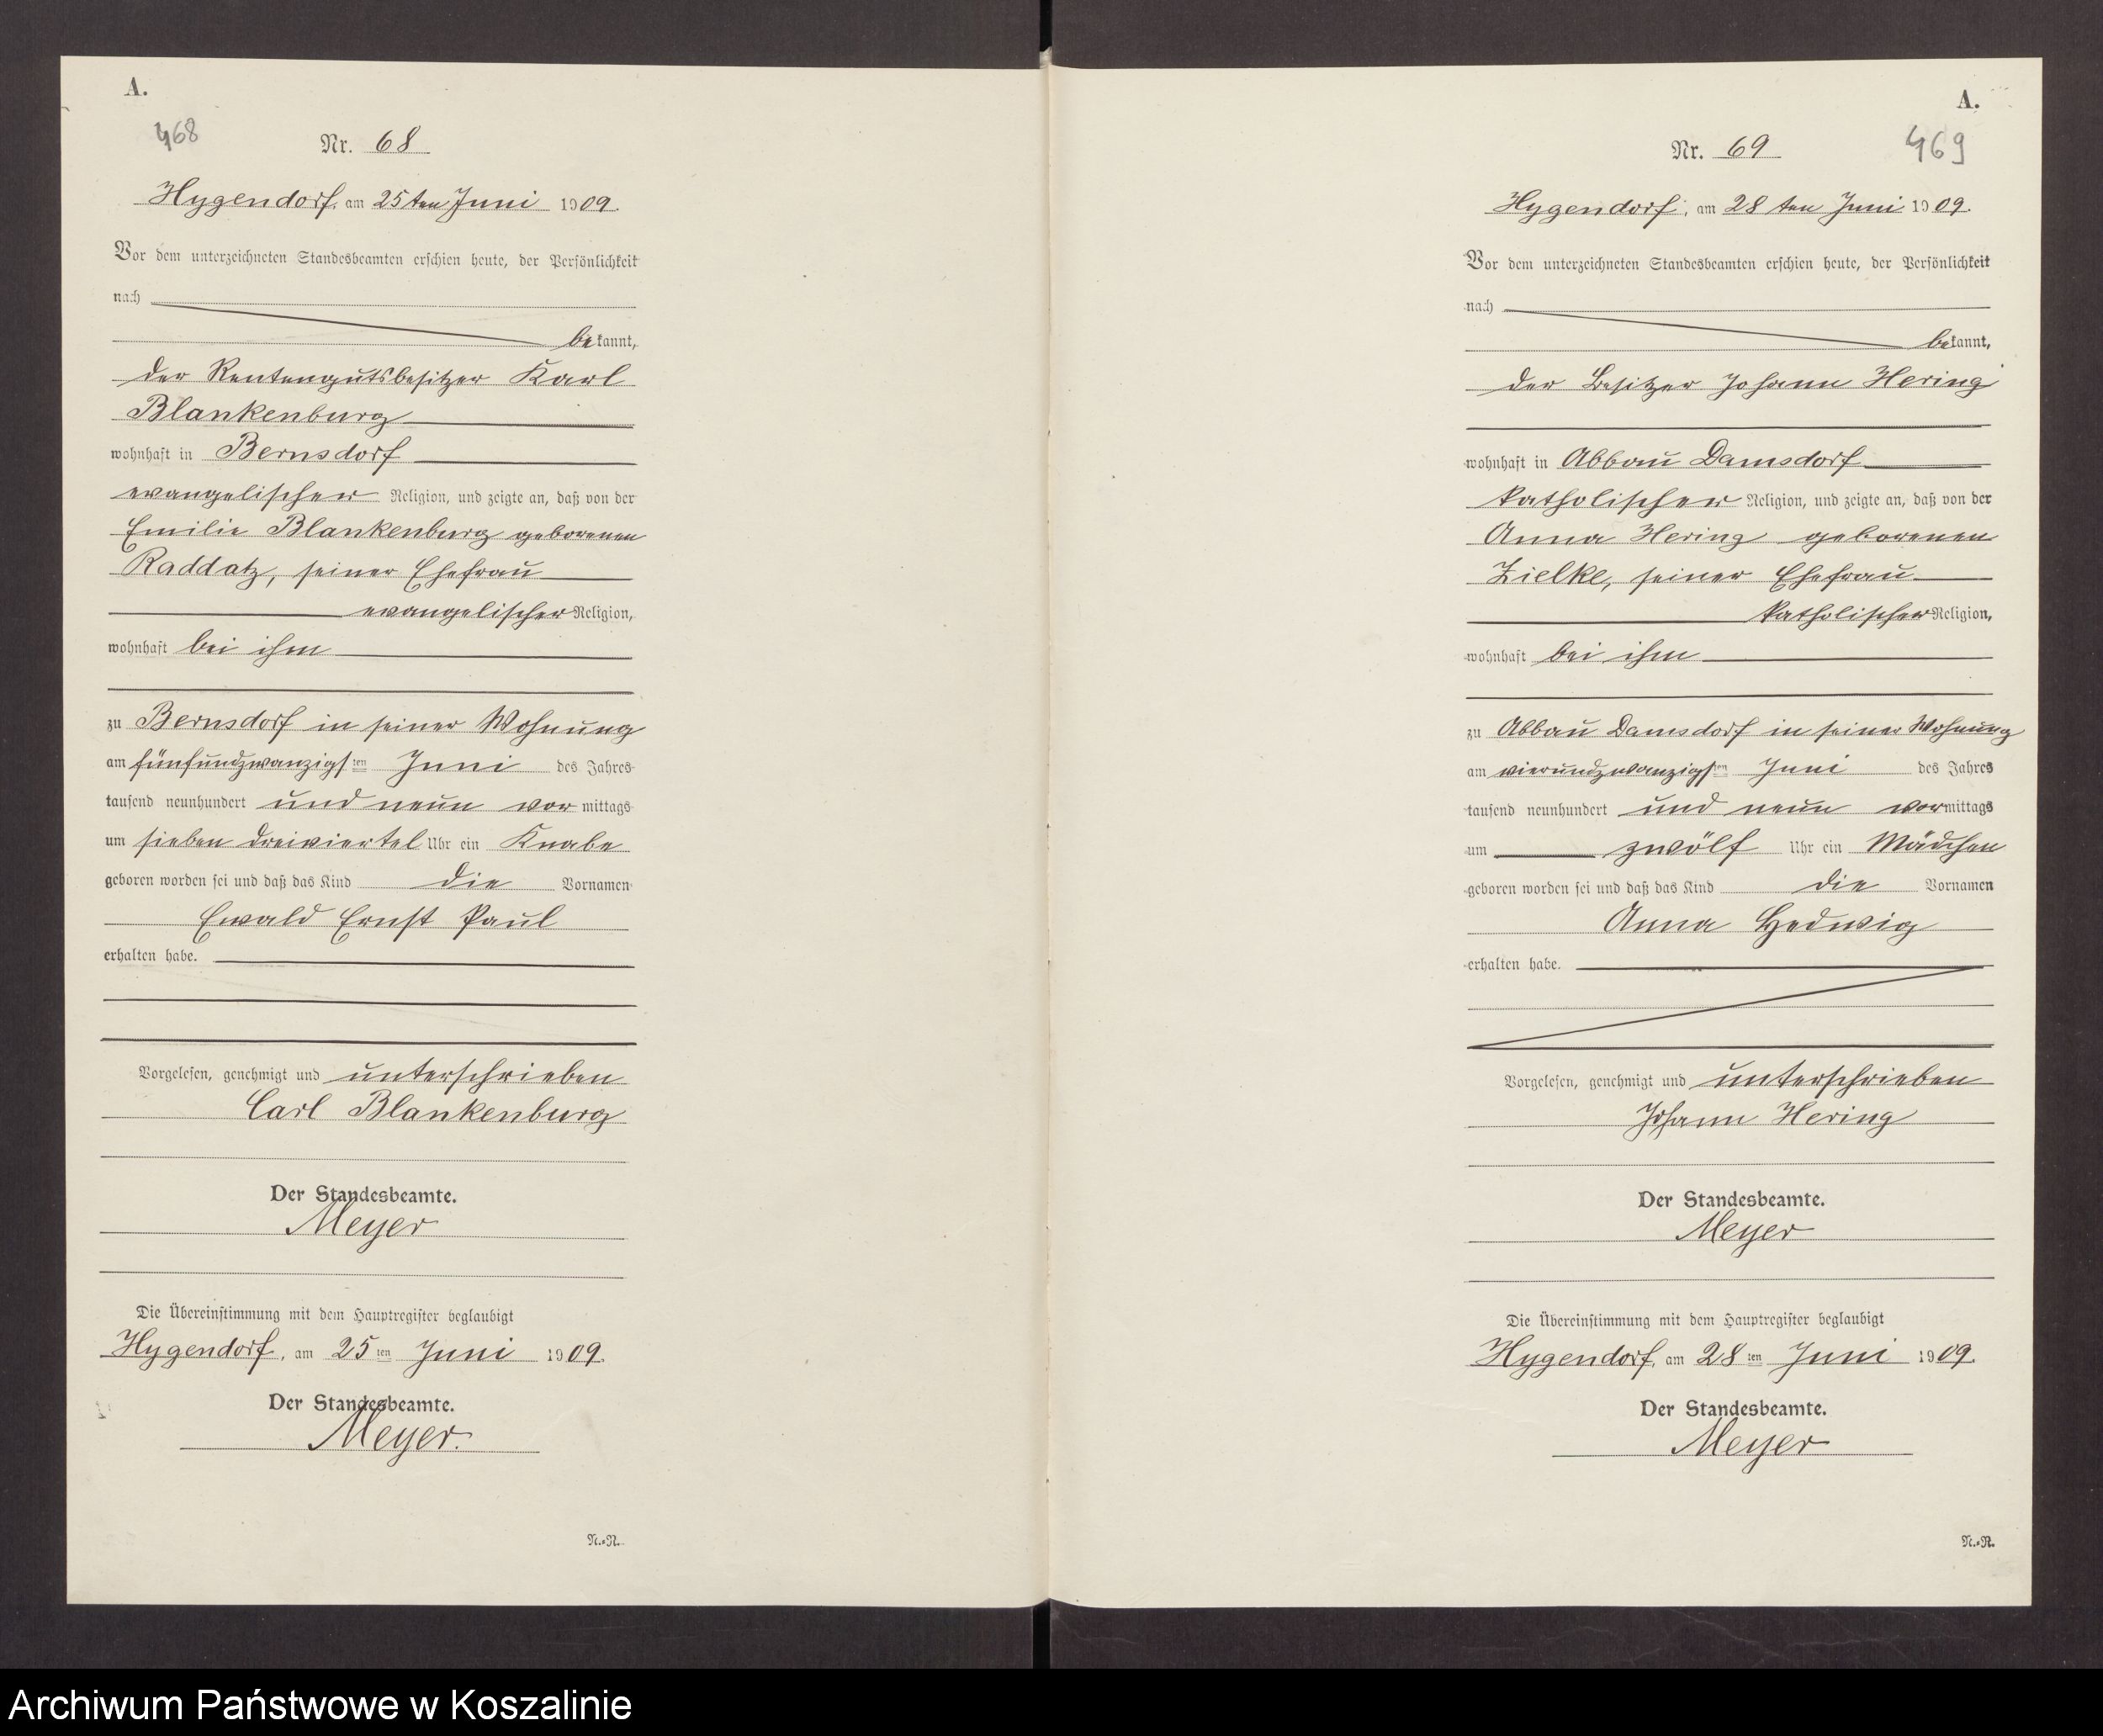 A.
468
Nr. 68
Hygendorf, am 25ten Juni 1909.
Vor dem unterzeichneten Standesbeamten erschien heute, der Persönlichkeit
nach
bekannt,
der Rentengutsbesitzer Karl
Blankenburg
wohnhaft in Bernsdorf
evangelischer Religion, und zeigte an, daß von der
Emilie Blankenburg geborenen
Raddatz, seiner Ehefrau
evangelischer Religion,
wohnhaft bei ihm
zu Bernsdorf in seiner Wohnung
am fünfundzwanzigsten Juni des Jahres
tausend neunhundert und neun vormittags
um sieben dreiviertel Uhr ein Knabe
geboren worden sei und daß das Kind die Vornamen
Ewald Ernst Paul
erhalten habe.
Vorgelesen, genehmigt und unterschrieben
Carl Blankenburg
Der Standesbeamte.
Meyer
Die Übereinstimmung mit dem Hauptregister beglaubigt
Hygendorf, am 25ten Juni 1909.
Der Standesbeamte.
Meyer.
N.=R.
A.
469
Nr. 69
Hygendorf, am 28ten Juni 1909.
Vor dem unterzeichneten Standesbeamten erschien heute, der Persönlichkeit
nach
bekannt,
der Besitzer Johann Hering
wohnhaft in Abbau Damsdorf
katholischer Religion, und zeigte an, daß von der
Anna Hering geborenen
Zielke, seiner Ehefrau
katholischer Religion,
wohnhaft bei ihm
zu Abbau Damsdorf in seiner Wohnung
am vierundzwanzigsten Juni des Jahres
tausend neunhundert und neun vormittags
um zwölf Uhr ein Mädchen
geboren worden sei und daß das Kind die Vornamen
Anna Hedwig
erhalten habe.
Vorgelesen, genehmigt und unterschrieben
Johann Hering
Der Standesbeamte.
Meyer
Die Übereinstimmung mit dem Hauptregister beglaubigt
Hygendorf, am 28ten Juni 1909.
Der Standesbeamte.
Meyer
N.=R.
Archiwum Państwowe w Koszalinie